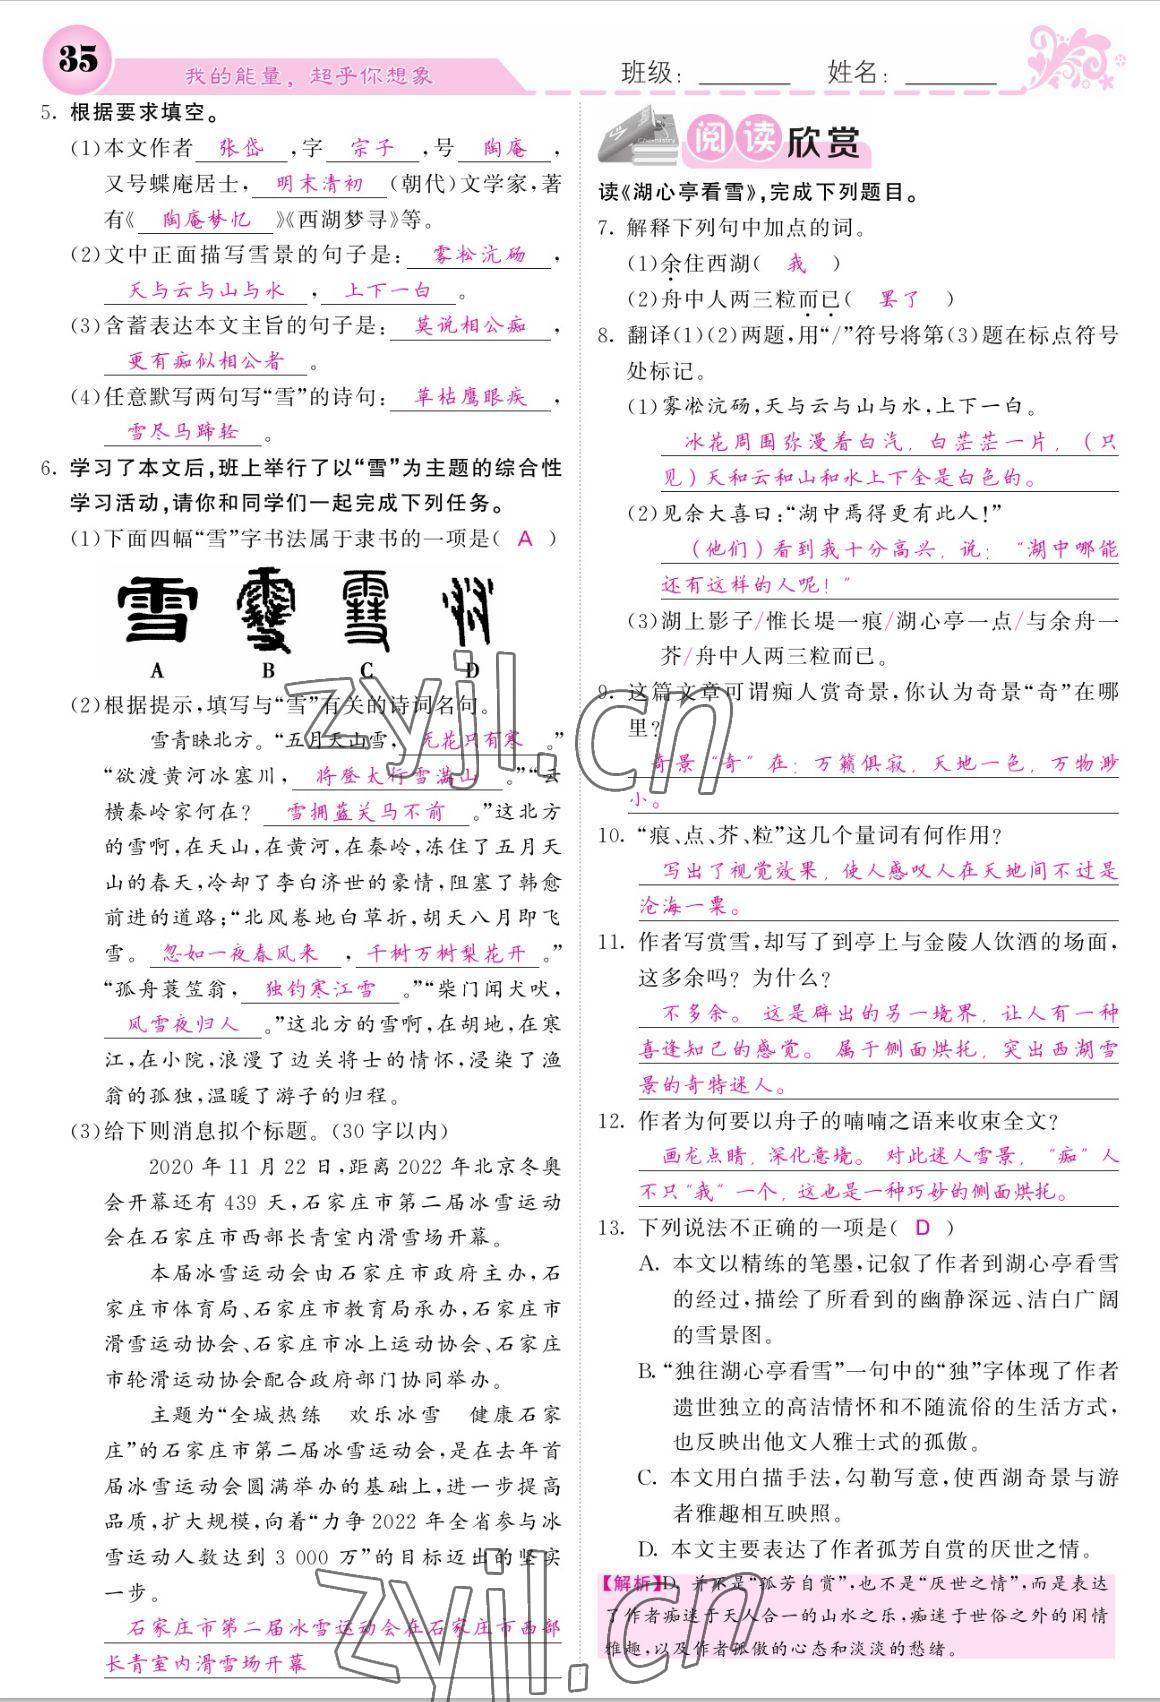 35
我的能量，超乎你想象
班级：
姓名：
5. 根据要求填空。
(1)本文作者 张岱 ,字 宗子 ,号 陶庵 ,
又号蝶庵居士, 明末清初 (朝代)文学家,著
有《 陶庵梦忆 》《西湖梦寻》等。
(2)文中正面描写雪景的句子是: 雾凇沆砀 ,
天与云与山与水 , 上下一白 。
(3)含蓄表达本文主旨的句子是: 莫说相公痴 ,
更有痴似相公者 。
(4)任意默写两句写“雪”的诗句: 草枯鹰眼疾 ,
雪尽马蹄轻 。
6. 学习了本文后,班上举行了以“雪”为主题的综合性
学习活动,请你和同学们一起完成下列任务。
(1)下面四幅“雪”字书法属于隶书的一项是( A )
雪
A B C D
(2)根据提示,填写与“雪”有关的诗词名句。
雪青睐北方。“五月天山雪, 无花只有寒 。”
“欲渡黄河冰塞川, 将登太行雪满山 。”“云
横秦岭家何在? 雪拥蓝关马不前 。”这北方
的雪啊,在天山,在黄河,在秦岭,冻住了五月天
山的春天,冷却了李白济世的豪情,阻塞了韩愈
前进的道路;“北风卷地白草折,胡天八月即飞
雪。 忽如一夜春风来 , 千树万树梨花开 。”
“孤舟蓑笠翁, 独钓寒江雪 。”“柴门闻犬吠,
风雪夜归人 。”这北方的雪啊,在胡地,在寒
江,在小院,浪漫了边关将士的情怀,浸染了渔
翁的孤独,温暖了游子的归程。
(3)给下则消息拟个标题。(30 字以内)
2020 年 11 月 22 日,距离 2022 年北京冬奥
会开幕还有 439 天,石家庄市第二届冰雪运动
会在石家庄市西部长青室内滑雪场开幕。
本届冰雪运动会由石家庄市政府主办,石
家庄市体育局、石家庄市教育局承办,石家庄市
滑雪运动协会、石家庄市冰上运动协会、石家庄
市轮滑运动协会配合政府部门协同举办。
主题为“全城热练 欢乐冰雪 健康石家
庄”的石家庄市第二届冰雪运动会,是在去年首
届冰雪运动会圆满举办的基础上,进一步提高
品质,扩大规模,向着“力争 2022 年全省参与冰
雪运动人数达到 3 000 万”的目标迈出的坚实
一步。
石家庄市第二届冰雪运动会在石家庄市西部
长青室内滑雪场开幕
Chemistry
阅读欣赏
读《湖心亭看雪》,完成下列题目。
7. 解释下列句中加点的词。
(1)余住西湖( 我 )
(2)舟中人两三粒而已( 罢了 )
8. 翻译(1)(2)两题,用“/”符号将第(3)题在标点符号
处标记。
(1)雾凇沆砀,天与云与山与水,上下一白。
冰花周围弥漫着白汽，白茫茫一片，（只
见）天和云和山和水上下全是白色的。
(2)见余大喜曰:“湖中焉得更有此人!”
（他们）看到我十分高兴，说：“湖中哪能
还有这样的人呢！”
(3)湖上影子/惟长堤一痕/湖心亭一点/与余舟一
芥/舟中人两三粒而已。
9. 这篇文章可谓痴人赏奇景,你认为奇景“奇”在哪
里?
奇景“奇”在：万籁俱寂，天地一色，万物渺
小。
10. “痕、点、芥、粒”这几个量词有何作用?
写出了视觉效果，使人感叹人在天地间不过是
沧海一粟。
11. 作者写赏雪,却写了到亭上与金陵人饮酒的场面,
这多余吗? 为什么?
不多余。这是辟出的另一境界，让人有一种
喜逢知己的感觉。属于侧面烘托，突出西湖雪
景的奇特迷人。
12. 作者为何要以舟子的喃喃之语来收束全文?
画龙点睛，深化意境。对此迷人雪景，“痴”人
不只“我”一个，这也是一种巧妙的侧面烘托。
13. 下列说法不正确的一项是( D )
A. 本文以精练的笔墨,记叙了作者到湖心亭看雪
的经过,描绘了所看到的幽静深远、洁白广阔
的雪景图。
B. “独往湖心亭看雪”一句中的“独”字体现了作者
遗世独立的高洁情怀和不随流俗的生活方式,
也反映出他文人雅士式的孤傲。
C. 本文用白描手法,勾勒写意,使西湖奇景与游
者雅趣相互映照。
D. 本文主要表达了作者孤芳自赏的厌世之情。
【解析】D. 并不是“孤芳自赏”,也不是“厌世之情”,而是表达
了作者痴迷于天人合一的山水之乐,痴迷于世俗之外的闲情
雅趣,以及作者孤傲的心态和淡淡的愁绪。
zyjl.cn
zyjl.cn